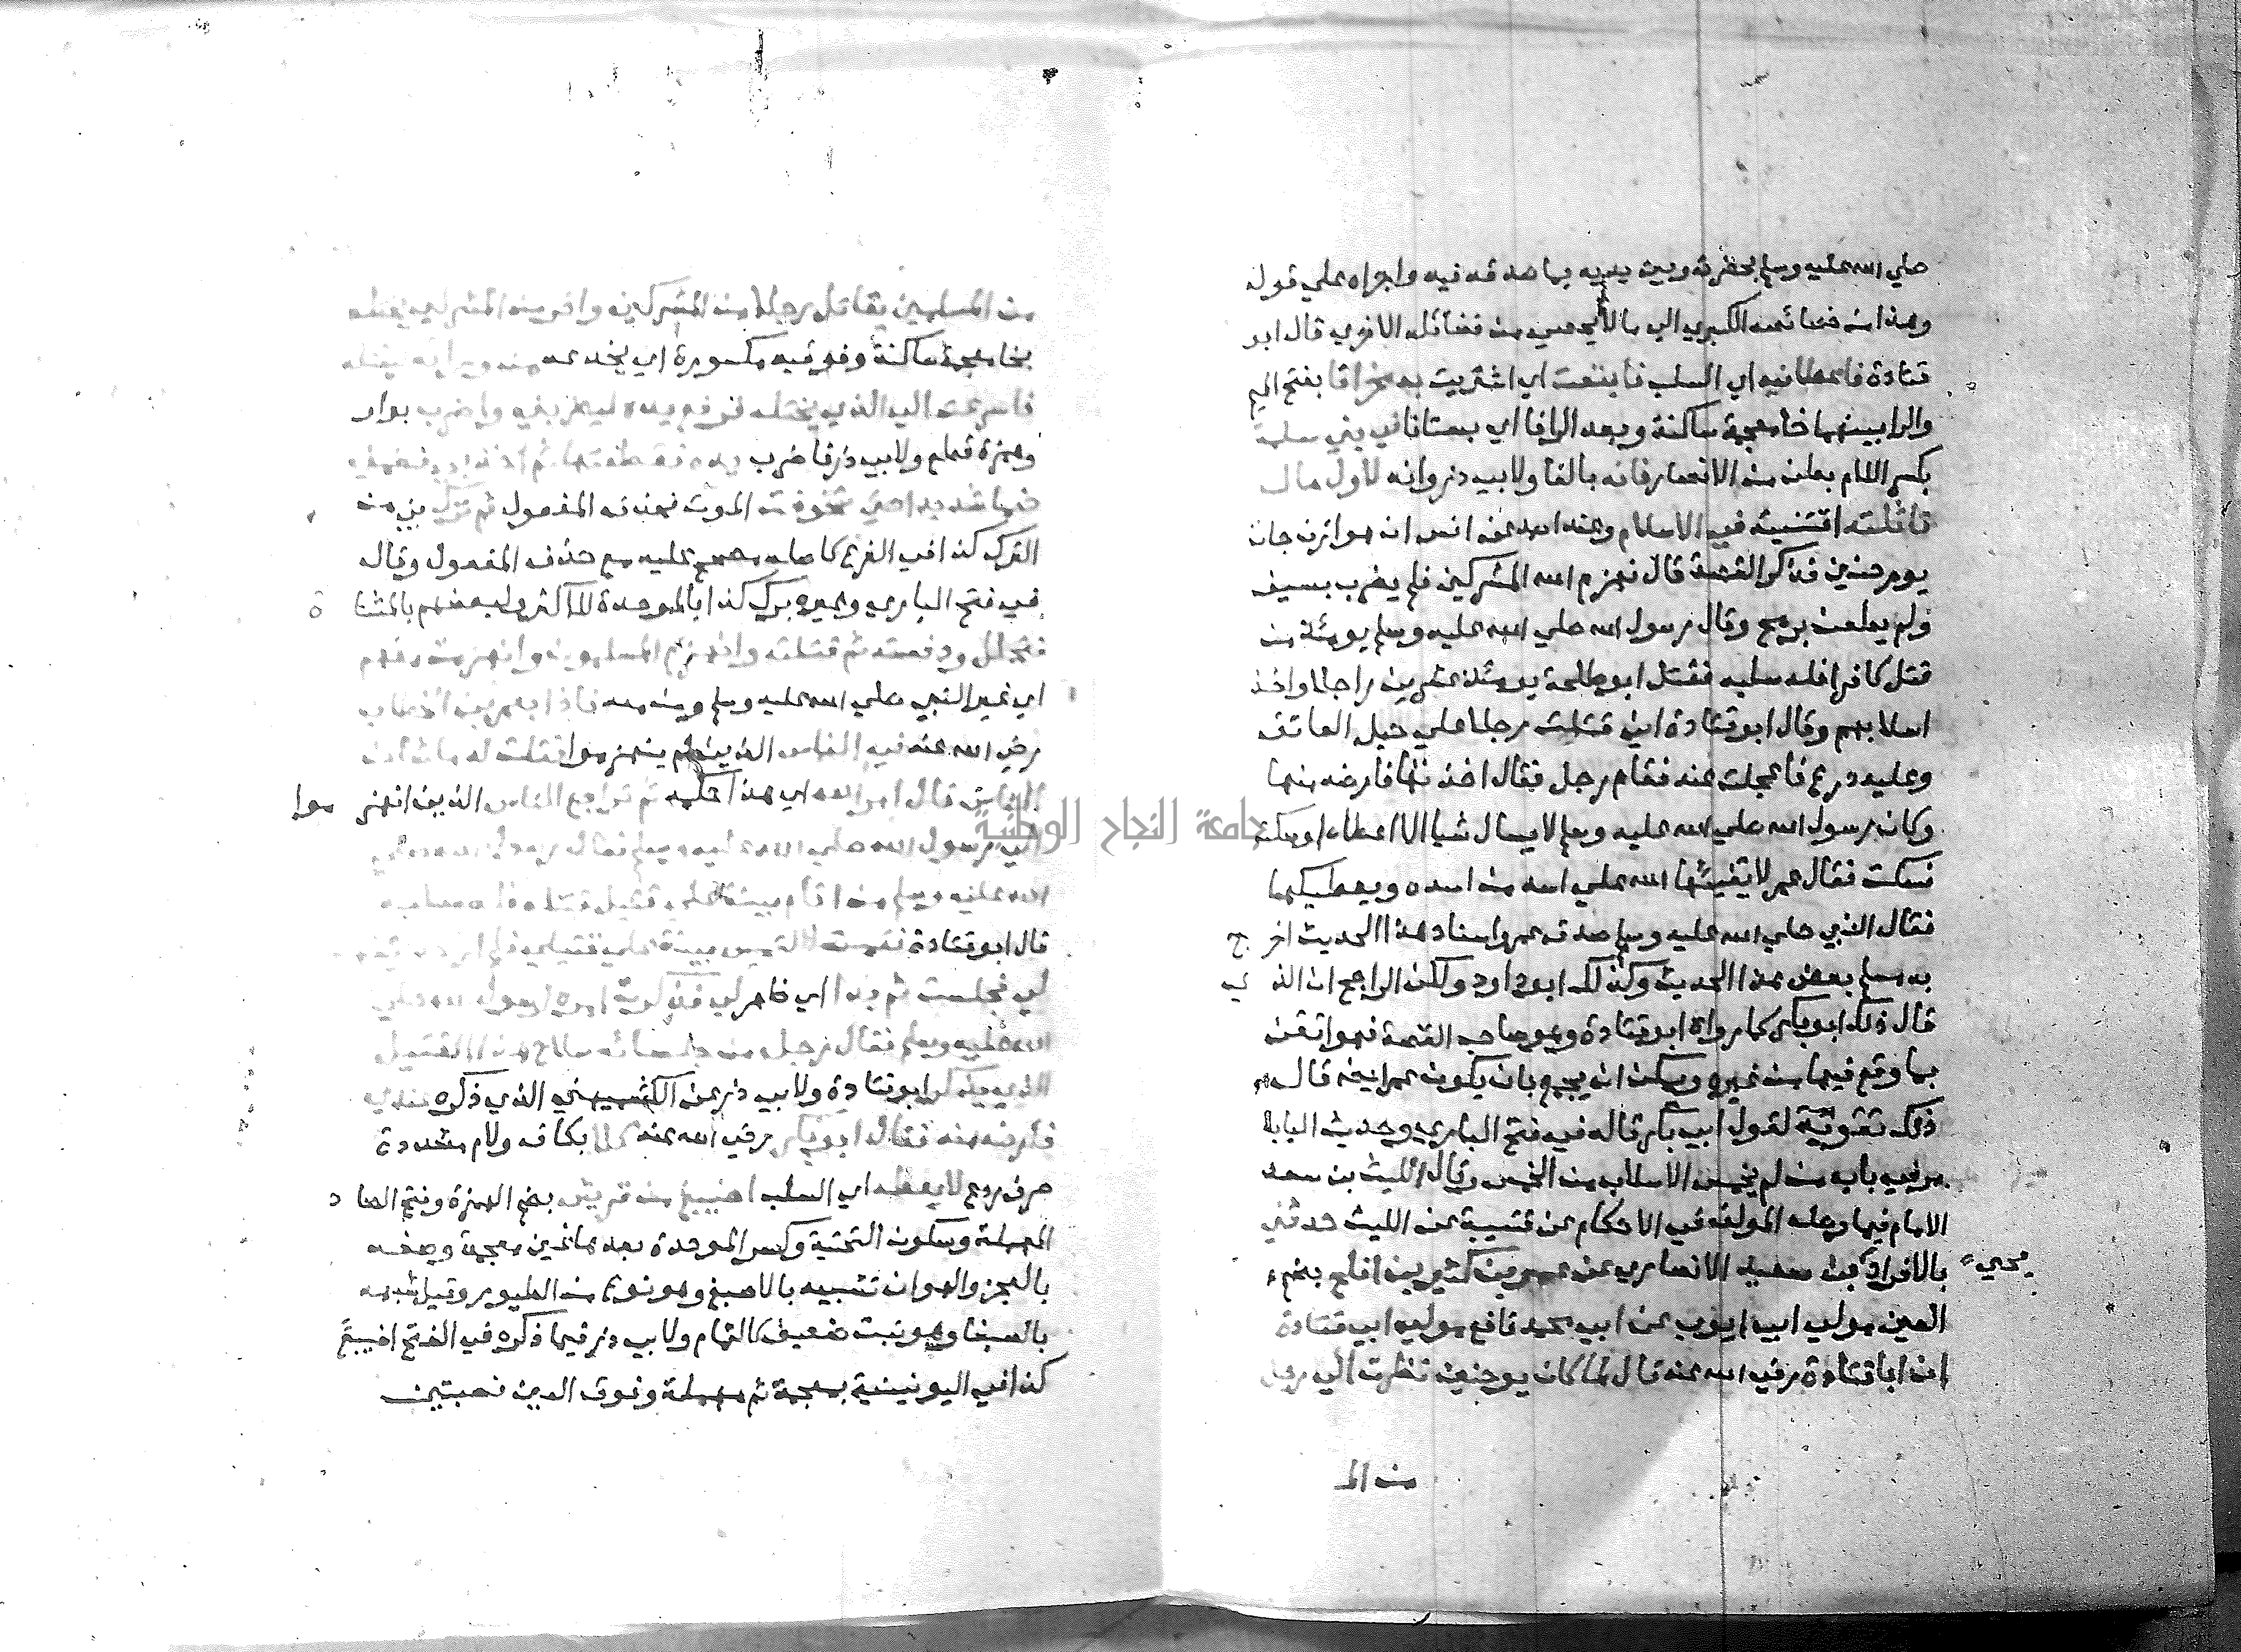 صلي الله عليه وسلم بحضرته وبين يديه بما صدقه فيه واجراه علي قوله
وهذا من خصائصه الكبري الي ما لا يحصي من فضائله الاخري قال ابو
قتادة فاعطانيه اي السلب فابتعت اي اشتريت به مخرافا بفتح الميم
والرا بينهما خا معجمة ساكنة وبعد الرا فا اي بستانا في بني سلمة
بكسر اللام بطن من الانصار فانه بالفا ولابي ذر وانه لاول مال
تاثلته اقتنيته في الاسلام وعند احمد عن انس ان هوازن جات
يوم حنين فذكر القصة قال فهزم الله المشركين فلم يضرب بسيف
ولم يطعن برمح وقال رسول الله صلي الله عليه وسلم يومئذ من
قتل كافرا فله سلبه فقتل ابو طلحة يومئذ عشرين راجلا واخذ
اسلابهم وقال ابو قتادة اني قتلت رجلا علي حبل العاتق
وعليه درع فاعجلت عنه فقام رجل فقال اخذتها فارضه منها
وكان رسول الله صلي الله عليه وسلم لا يسال شيا الا اعطاه او سكت
فسكت فقال عمر لا يفيئها الله علي اسد من اسده ويعطيكها
فقال النبي صلي الله عليه وسلم صدق عمر واسناد هذا الحديث اخرج
به مسلم بعض هذا الحديث وكذلك ابو داود ولكن الراجح ان الذي
قال ذلك ابو بكر كما رواه ابو قتادة وهو صاحب القصة فهو اتقن
بما وقع فيها من غيره ويمكن ان يجمع بان يكون عمر ايضا قال
ذلك تقوية لقول ابي بكر قاله في فتح الباري وحديث الباب
مر في باب من لم يخمس الاسلاب من الخمس وقال الليث بن سعد
الامام فيما وصله المولف في الاحكام عن قتيبة عن الليث حدثني
بالافراد يحيي بن سعيد الانصاري عن عمر بن كثير بن افلح بضم
العين مولي ابي ايوب عن ابي محمد نافع مولي ابي قتادة
ان ابا قتادة رضي الله عنه قال لما كان يوم حنين نظرت الي رجل
من الم
من المسلمين يقاتل رجلا من المشركين واخر من المشركين يختله
بخا معجمة ساكنة وفوقيه مكسورة اي يخدعه من ورائه ليقتله
فاسرعت الي الذي يختله فرفع يده ليضربني واضرب بواو
وهمزة قطع ولابي ذر فاضرب يده فقطعتها ثم اخذني فضمني
ضما شديدا حتي تخوفت الموت فحذف المفعول ثم ترك من
الترك كذا في الفرع كاصله مصحح عليه مع حذف المفعول وقال
في فتح الباري وغيره برك كذا بالموحدة للاكثر ولبعضهم بالمثناة
فتحلل ودفعته ثم قتلته وانهزم المسلمون وانهزمت معهم
اي غير النبي صلي الله عليه وسلم ومن معه فاذا بعمر بن الخطاب
رضي الله عنه في الناس الذين لم ينهزموا فقلت له ما شان
الناس قال امر الله اي هذا حكمه ثم تراجع الناس الذين انهزموا
الي رسول الله صلي الله عليه وسلم فقال رسول الله صلي
الله عليه وسلم من اقام بينة علي قتيل قتله فله سلبه
قال ابو قتادة فقمت لالتمس بينة علي قتيلي فلم ار احدا يشهد
لي فجلست ثم بدا اي ظهر لي فذكرت امره لرسول الله صلي
الله عليه وسلم فقال رجل من جلسائه سلاح هذا القتيل
الذي يذكر ابو قتادة ولابي ذر عن الكشميهني الذي ذكره عندي
فارضه منه فقال ابو بكر رضي الله عنه كلا بكاف ولام مشددة
حرف ردع لا يعطه اي السلب اصيبغ من قريش بضم الهمزة وفتح الصاد
المهملة وسكون التحتية وكسر الموحدة بعدها غين معجمة وصفه
بالعجز والهوان تشبيه بالاصبغ وهو نوع من الطيور وقيل شبهه
بالصبغا وهو نبت ضعيف كالثمام ولابي ذر فيما ذكره في الفتح اضيبع
كذا في اليونينية بمعجمة ثم مهملة وفوق العين نصبتين